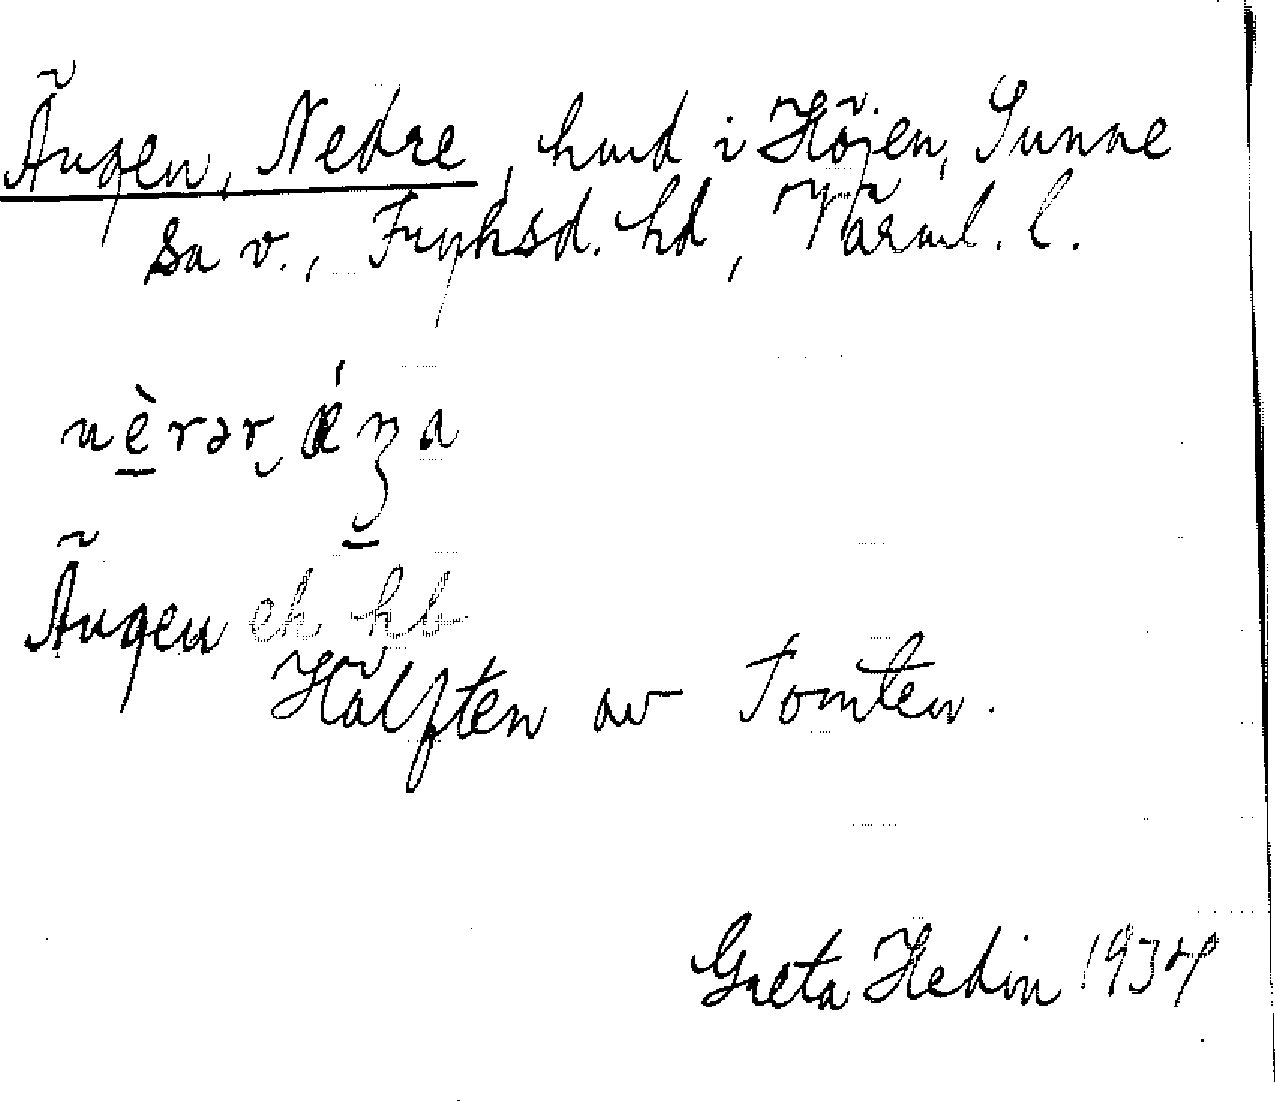 Ängen, Nedre, hmd i Höjen, Sunne
sn v., Fryksd. hd, Värml. l.
nèrər
Ängen ek hb
Hälften av Tomten.
Greta Hedin 1934